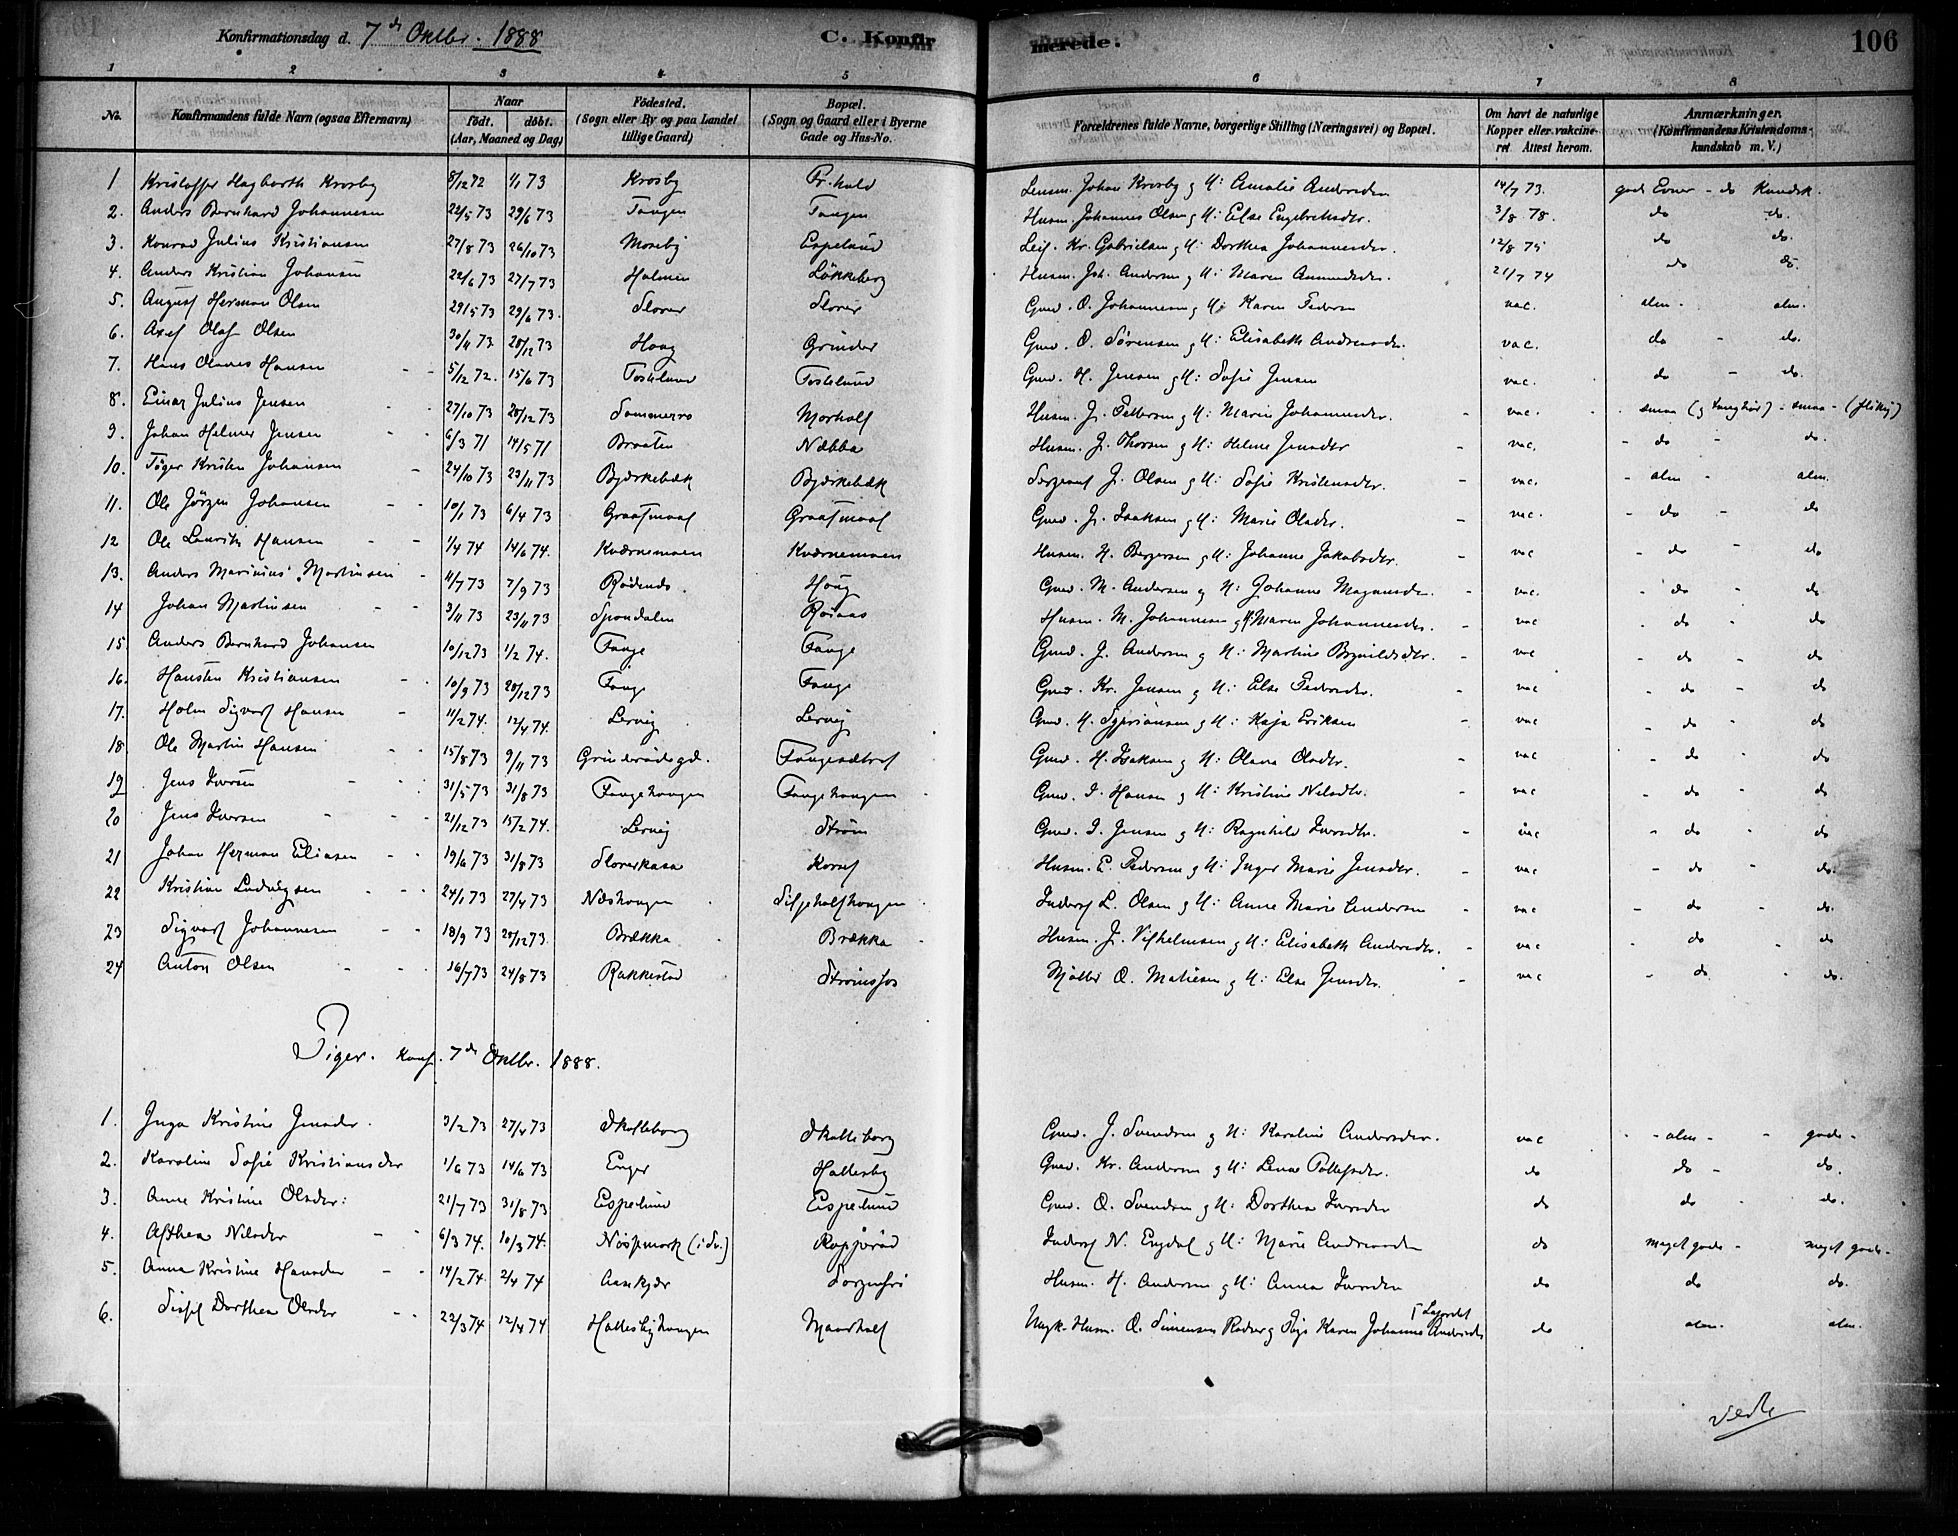 Konfirmationsdag d. 7de Oktbr. 1888 C. Konfirmerede. 106
1 2 3 4 5 6 7 8
No. Konfirmandens fulde Navn (ogsaa Efternavn) Naar født. døbt. (Aar, Maaned og Dag) Fødested. (Sogn eller By og paa Landet tillige Gaard) Bopæl. (Sogn og Gaard eller i Byerne Gade og Hus-No. Forældrenes fulde Navne, borgerlige Stilling (Næringsvei) og Bopæl. Om havt de naturlige Kopper eller vakcineret Attest herom. Anmærkninger. (Konfirmandens Kristendomskundskab m. V.)
1 Kristoffer Hagbarth Krosby 8/12 72 1/1 73 Krosby Fr.hald Lensm. Johan Krosby og H: Amalie Andersden 14/7 73. gode Evner - do Kundsk.
2. Anders Bernhard Johannesen 22/5 73 29/6 73 Tangen Tangen Husm. Johannes Olsen og H: Else Engebretsdtr. 3/8 78. do do.
3. Konrad Julius Kristiansen 27/8 73 26/10 73 Moseby Espelund Leil. Kr. Gabrielsen og H: Dorthea Johannesdtr. 12/8 75 do do.
4. Anders Kristian Johansen 22/6 73 27/7 73 Holmen Løkkeberg Husm. Joh. Andersen og H: Maren Amundsdtr. 21/7 74 do do.
5. August Herman Olsen 29/5 73 29/6 73. Slorer Slorer Gmd. O. Johannesen og H: Karen Pedersen vac. alm. alm.
6. Axel Olaf Olsen 30/11 73 28/12 73 Houg Grinder Gmd. O. Sørensen og H: Elisabeth Andreasdtr. vac. do - do.
7. Hans Hansen 5/12 72. 15/6 73 Toslelund Toslelund Gmd. H. Jensen og H: Sofie Jensen vac. do - do.
8. Einar Julius Jensen 27/10 73 28/12 73 Sommerro Morholt Husm. J. Pettersen og H: Maren Johannesdtr. vac. smaa (og tunghør) - smaa - (flittig)
9. Johan Helmer Jensen 6/3 71 14/5 71 Braaten Næbba Husm. J. Thorsen og H: Helene Jensdtr vac. - do - do.
10. Tøger Kristen Johansen 24/10 73 23/11 73 Bjørkebæk Bjørkebæk Sergeant J. Olsen og H: Sofie Kristensdtr. vac. - alm - alm.
11. Ole Jørgen Johansen 10/1 73 6/4 73 Graatmaal Graatmaal Gmd. J. Isaksen og H: Marie Olsdtr. vac. - do - do
12 Ole Lauritz Hansen 1/4 74 14/6 74. Kværnemoen Kværnemoen Husm. H. Bergersen og H: Johanne Jakobsdtr. vac - do - do
13. Anders Marinius Martinsen 11/7 73 7/9 73 Rødenes. Houg Gmd. M. Andersen og H: Johanne Magnusdtr. vac. - do - do
14 Johan Martinsen 3/11 73 23/11 73 Spondalen Røiaas Husm. M. Johannesen og H: Maren Johannesdtr. vac - do - do
15. Anders Bernhard Johansen 10/12 73 1/2 74. Fange Fange Gmd. J. Andersen og H: Martine Brynildsdtr. vac - do - do
16. Hansten Kristiansen 10/9 73 28/12 73 Fange Fange Gmd. Kr. Jensen og H: Else Pedersdtr. vac - do - do
17. Holm Sigvart Hansen 11/2 74. 12/4 74. Lervig Lervig Gmd. H. Syprianssen og H: Kaja Eriksen vac - do do
18. Ole Martin Hansen 15/8 73 9/11 73 Grinderødsgd. Fangesætret Gmd. H. Isaksen og H: Olava Olsdtr. vac - do do
19 Jens Iversen 31/5 73 31/8 73 Fangehougen Fangehougen Gmd. I. Hansen og H: Kristine Nilsdtr. vac - do - do
20 Jens Iversen 21/12 73 15/2 74. Lervig Strøm Gmd. I. Jensen og H: Ragnhild Iversdtr. vac - do - do
21 Johan Herman Eliasen 19/6 73 31/8 73 Slorerkasa Korset Husm. E. Pedersen og H: Inger Marie Jensdtr. vac - do - do.
22 Kristian Ludvigsen 24/1 73 27/4 73 Næshougen Siljeholthougen Inderst L. Olsen og H: Anne Marie Andersen vac - do - do.
23 Sigvart Johannesen 18/9 73 28/12 73. Brække Brække Husm. J. Vilhelmsen og H: Elisabeth Andersdtr. vac do - do
24 Anton Olsen 16/7 73 24/8 73 Rakkestad Strømsfos Møller O. Matisen og H: Else Jensdtr. vac - do - do.
Piger. Konf. 7de Oktbr. 1888.
1. Inga Kristine Jensdtr. 3/2 73 27/4 73 Skolleborg Skolleborg Gmd. J. Svendsen og H: Karoline Andersdtr. vac - alm - - gode -
2. Karoline Sofie Kristiansdtr 1/6 73 14/6 73 Enger Hallesby Gmd. Kr. Andersen og H: Lena Tollefsdtr. do do - do.
3. Anne Kristine Olsdtr: 21/7 73 31/8 73 Espelund Espelund Gmd. O. Svendsen og H: Dorthea Iversdtr do do - do.
4. Althea Nilsdtr 6/3 74. 10/3 74. Nøssmark (i Sv.) Inderst N. Engdal og H: Marie Andreasdtr do meget gode - meget gode -
5. Anna Kristine Hansdtr 14/2 74. 2/4 74 Aasekjær Sorgenfri Husm. H. Andersen og H: Anna Iversdtr do do do.
6. Sissel Dorthea Olsdtr 22/3 74 12/4 74 Hallesbyhougen Maarholt Ungk. Husm. O. Simensen og Pige Karen Johanne Andersdtr do alm. alm.